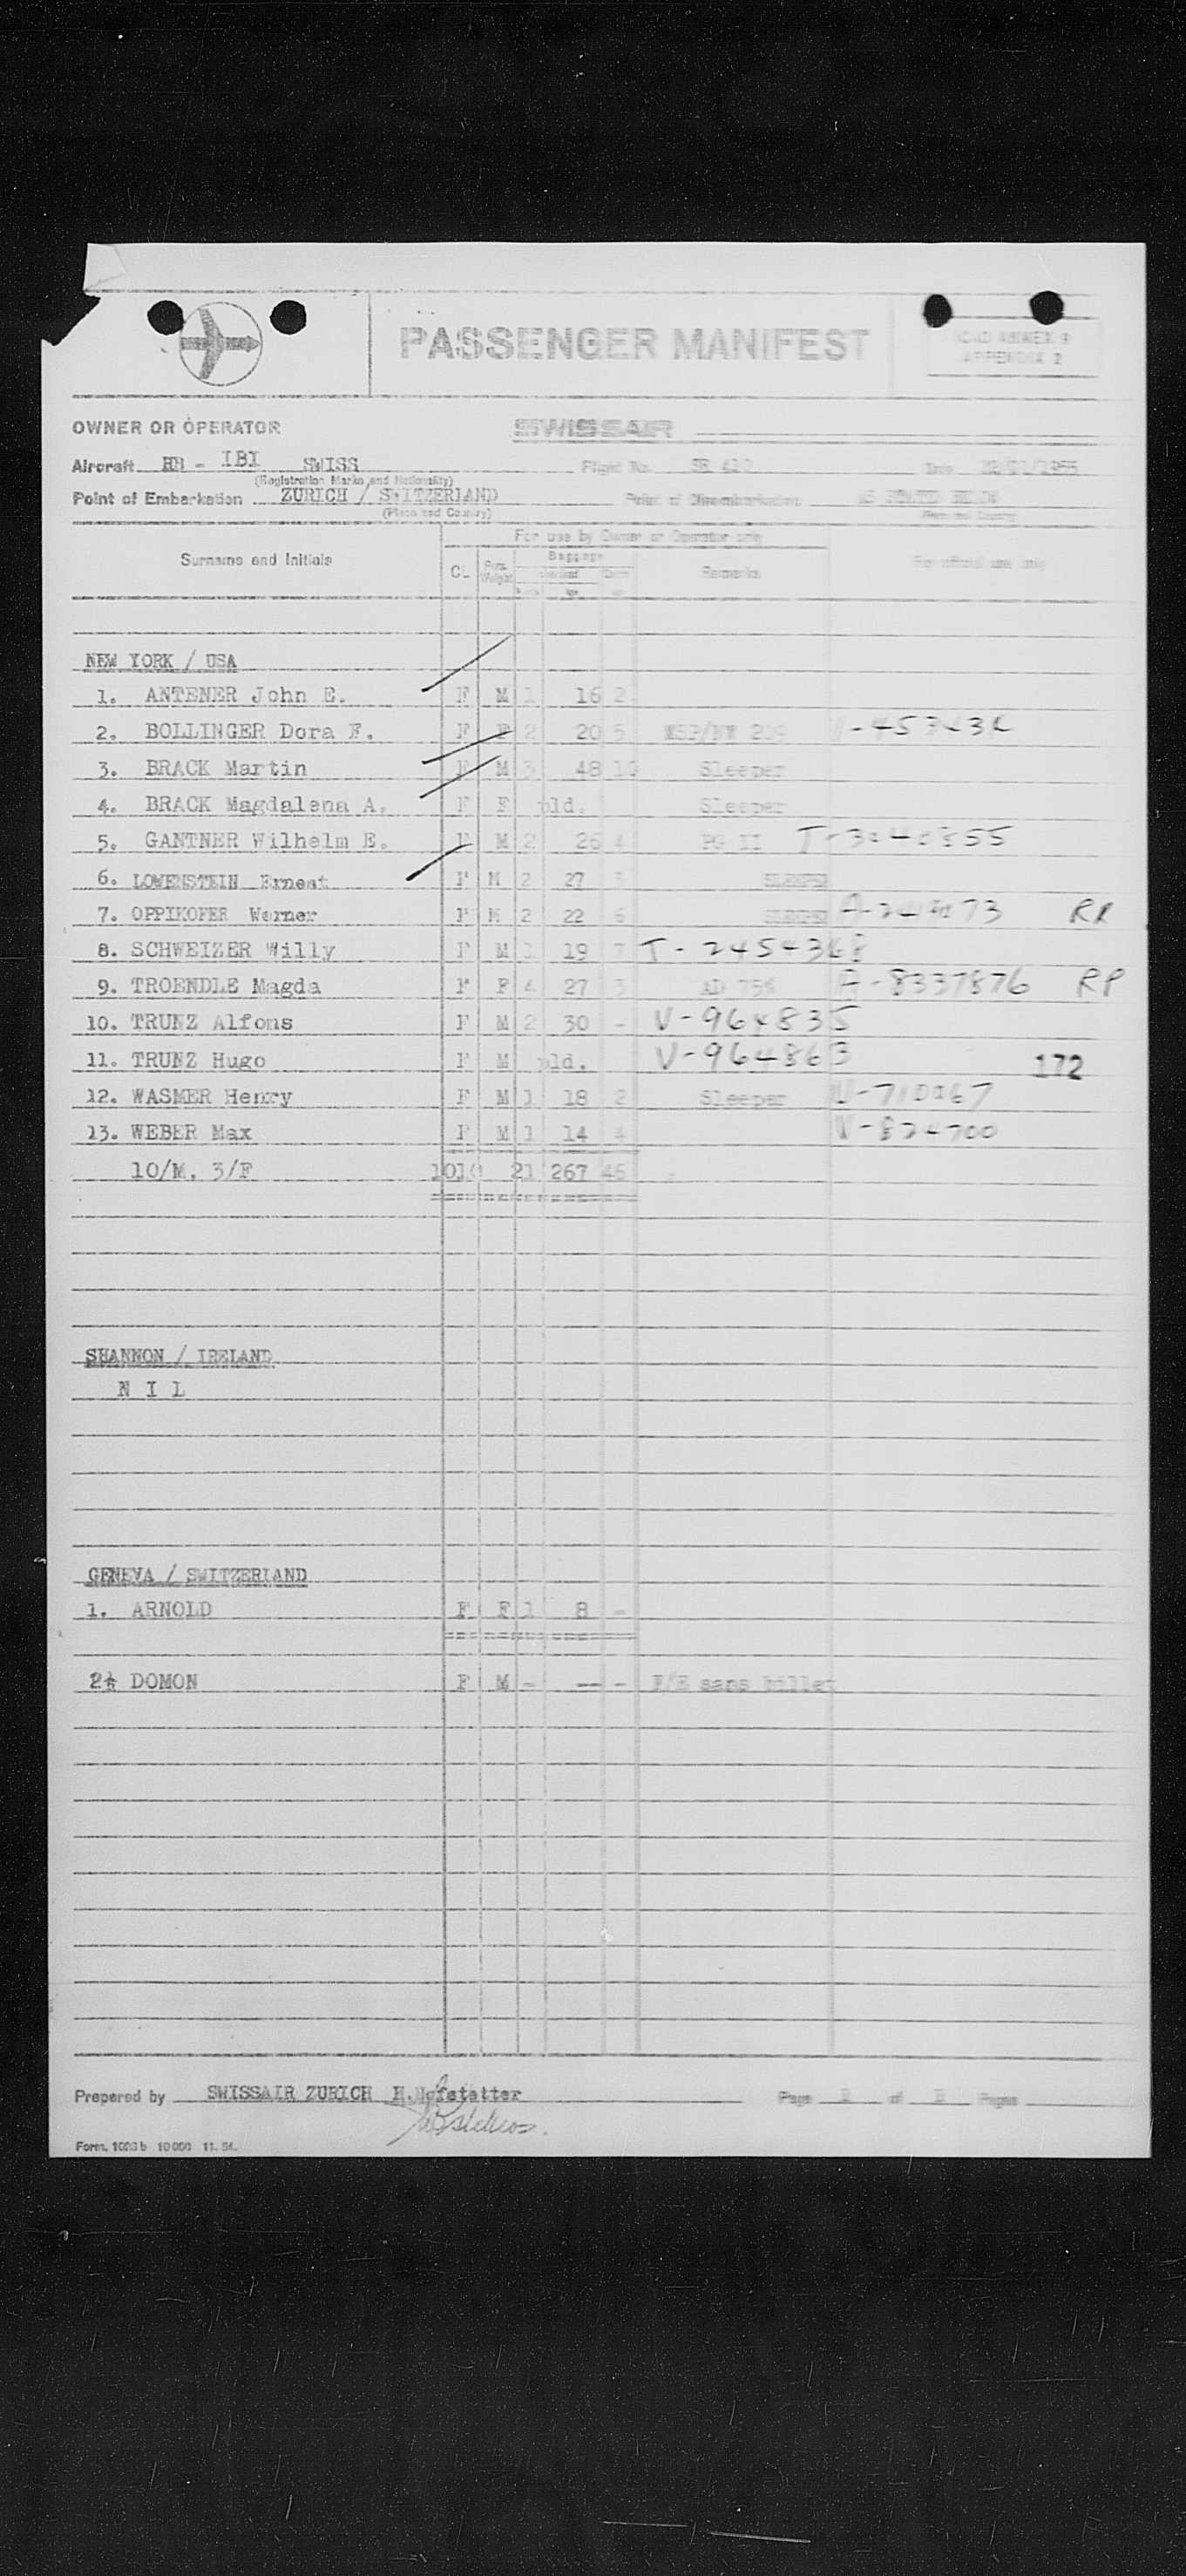 PASSENGER MANIFEST
ICAO ANNEX 9
APPENDIX 2
OWNER OR OPERATOR SWISSAIR
Aircraft HB - IBI SWISS Flight No. SR
(Registration Marks and Nationality)
Point of Embarkation ZURICH / SWITZERLAND Point of Disembarkation AS STATED BELOW
(Place and Country)
For use by Owner or Operator only
Surname and Initials CL. Pass. Weight Baggage Remarks For official use only
checked
NEW YORK / USA
1. ANTENER John E. F M 1 16 2
2. BOLLINGER Dora F. F F 2 20 5
3. BRACK Martin F M 3 48 Sleeper
4. BRACK Magdalena A. F F pld. Sleeper
5. GANTNER Wilhelm E. F M 2 26 4
6. LOWENSTEIN Ernest F M 2 27 3
7. OPPIKOFER Werner F M 2 22 6
8. SCHWEIZER Willy F M 19 7 T-2454368
9. TROENDLE Magda F F 4 27 3 A-8337876 RP
10. TRUNZ Alfons F M 2 30 - V-964835
11. TRUNZ Hugo F M pld. V-964863
172
12. WASMER Henry F M 1 18 2 Sleeper
13. WEBER Max F M 1 14 4 V-824700
10/M. 3/F 21 267 46
SHANNON / IRELAND
N I L
GENEVA / SWITZERLAND
1. ARNOLD F F 1 8 -
DOMON F M - -- - sans billet
Prepared by SWISSAIR ZURICH H.Hofstetter Page of Pages
Form. 1083 b 10000 11. 54.